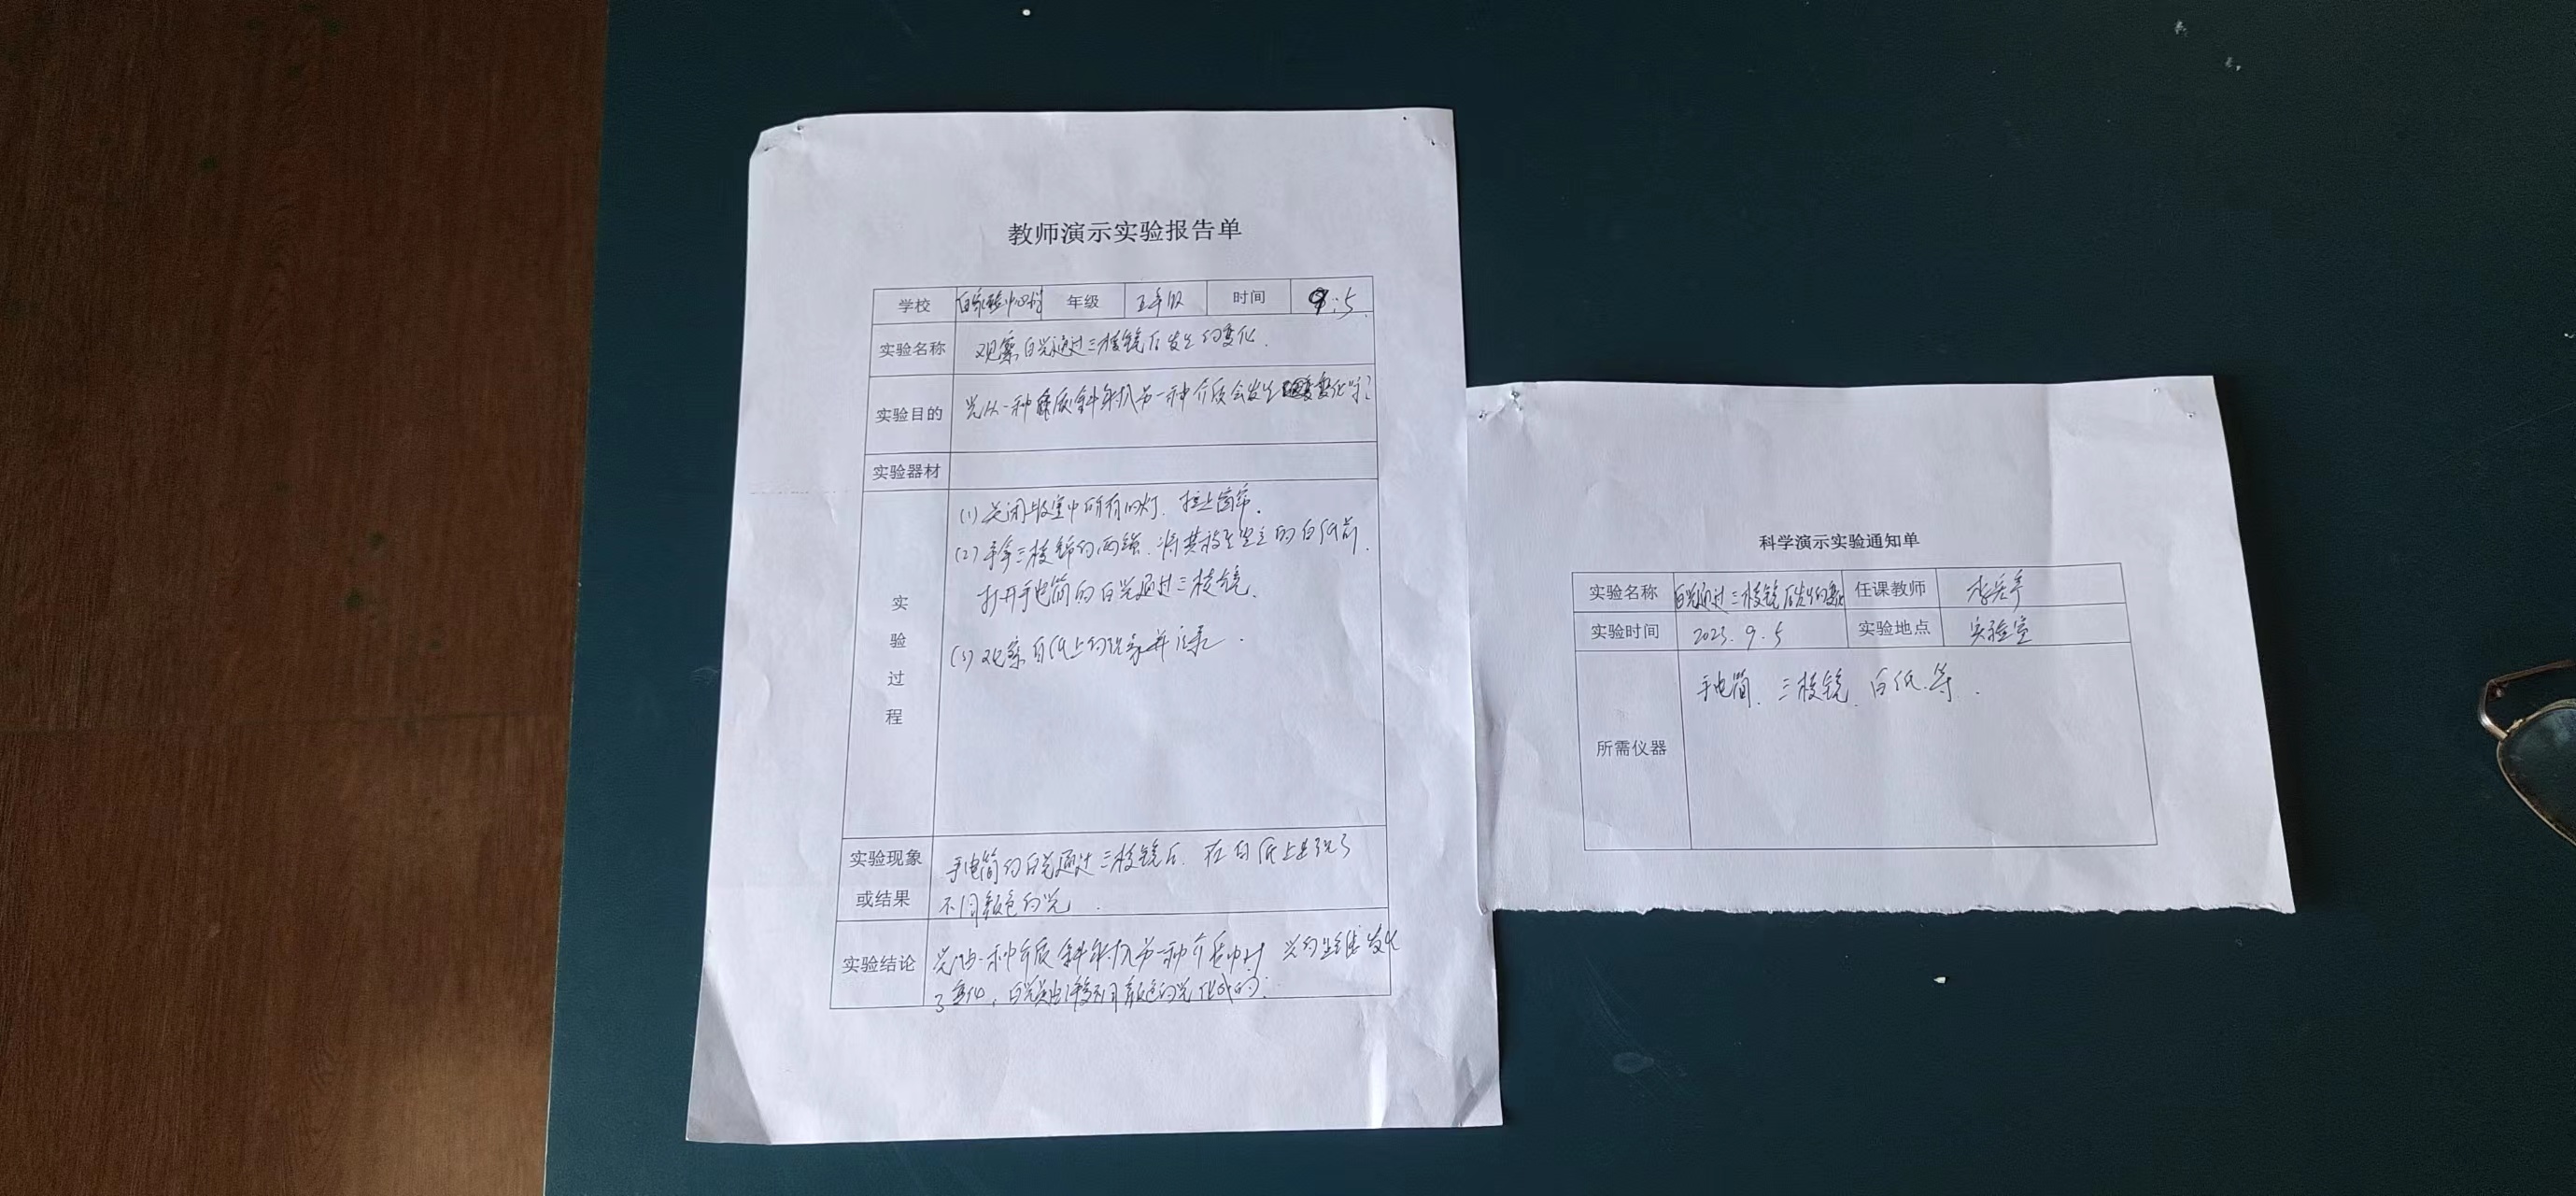 教师演示实验报告单
学校 年级 五年级 时间 9.5
实验名称 观察白光通过三棱镜后发生的变化.
实验目的 光从一种介质斜射入另一种介质会发生变化吗?
实验器材
实验过程
(1)关闭教室中所有的灯.拉上窗帘.
(2)手拿三棱镜的两端.将其放在竖立的白纸前.
打开手电筒的白光通过三棱镜.
(3)观察白纸上的现象并记录.
实验现象或结果
手电筒的白光通过三棱镜后.在白纸上出现了
不同颜色的光.
实验结论
光由一种介质斜射入另一种介质中时 光的路线发生
了变化,白光是由许多不同颜色的光组成的.
科学演示实验通知单
实验名称 白光通过三棱镜后发生的变化 任课教师
实验时间 2023.9.5 实验地点 实验室
所需仪器 手电筒、三棱镜、白纸.等.